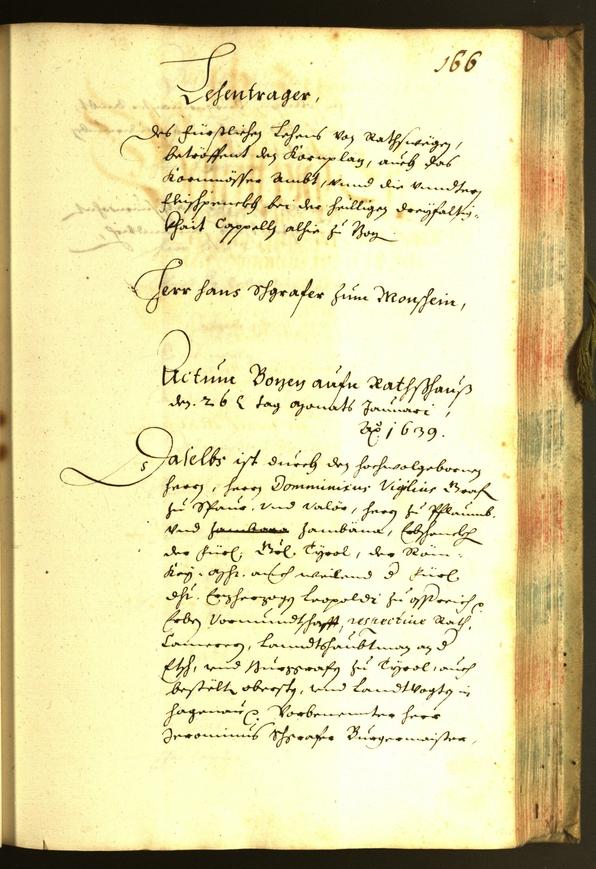 166
Lehentrager,
des fürstlichen Lehens von Rathswegen,
betröffent den Kornplaz, auch das
Kornmösser Ambt, vnnd die vnndtern
fleischpenckh bei der heilligen dreyfaltig-
khait Cappelln alhie zu Bozen
Herr Hans Schgrafer zum Monschein,
Actum Bozen aufm Rathshauß
den 26 tag Monats Januari,
Ao 1639.
Daselbs ist durch den hochwolgebornen
herrn, herrn Domminicus Vigilius Graf
zu Spaur, vnd Valör, herr zu Pflaumb
vnd Zambana, Erbschenckh
der fürl: Tyrol, der Röm:
Kay: auch weilend
dht: Erzherzogen Leopoldi zu Össtereich
Erben Vormundtschafft, respective Rath,
Camerer, Lanndtshaubtman an d
Etsch, vnd Burggrafe zu Tyrol, auch
bestelter obersten, vnd Landtvogte in
hagenau Vorbenennter herr
Jerominus Schgrafer Burgermaister,